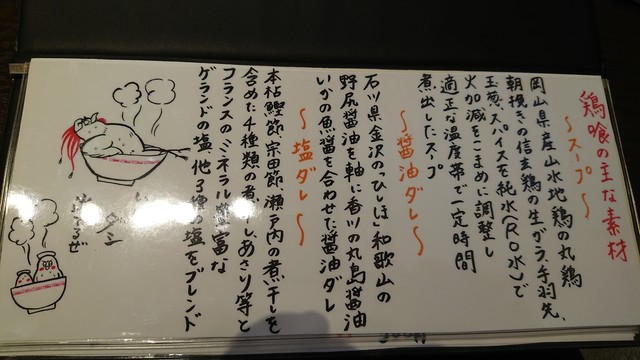 鶏喰の主な素材
〜スープ〜
岡山県産山水地鶏の丸鶏
朝挽きの信玄鶏の生がラ、手羽先、
玉葱、スパイスを純水(RO水)で
火加減をこまめに調整し
適正な温度帯で一定時間
煮出したスープ
〜醤油ダレ〜
石川県金沢の「ひしほ」和歌山の
野尻醤油を軸に香川の丸島醤油
いかの魚醤を合わせた醤油ダレ
〜塩ダレ〜
本枯鰹節、宗田節、瀬戸内の煮干しを
含めた4種類の煮干し、あさり等と
フランスのミネラル豊富な
ゲランドの塩、他3種の塩をブレンド
ダシ